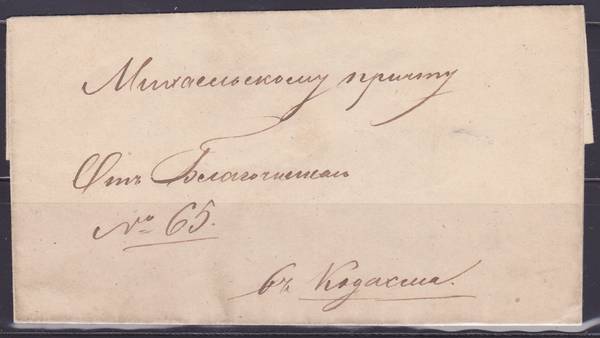 Михаельскому причту
Отъ Благочиннаго
№ 65.
въ Кодасма.